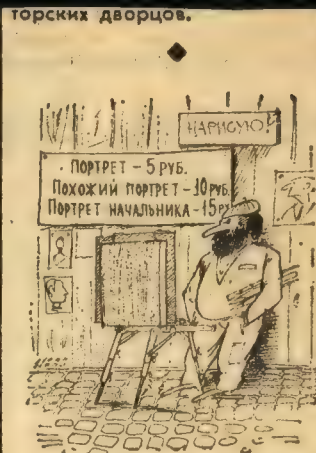 торских дворцов.
НАРИСУЮ!
ПОРТРЕТ – 5 РУБ.
ПОХОЖИЙ ПОРТРЕТ – 10 РУБ.
ПОРТРЕТ НАЧАЛЬНИКА – 15 РУ